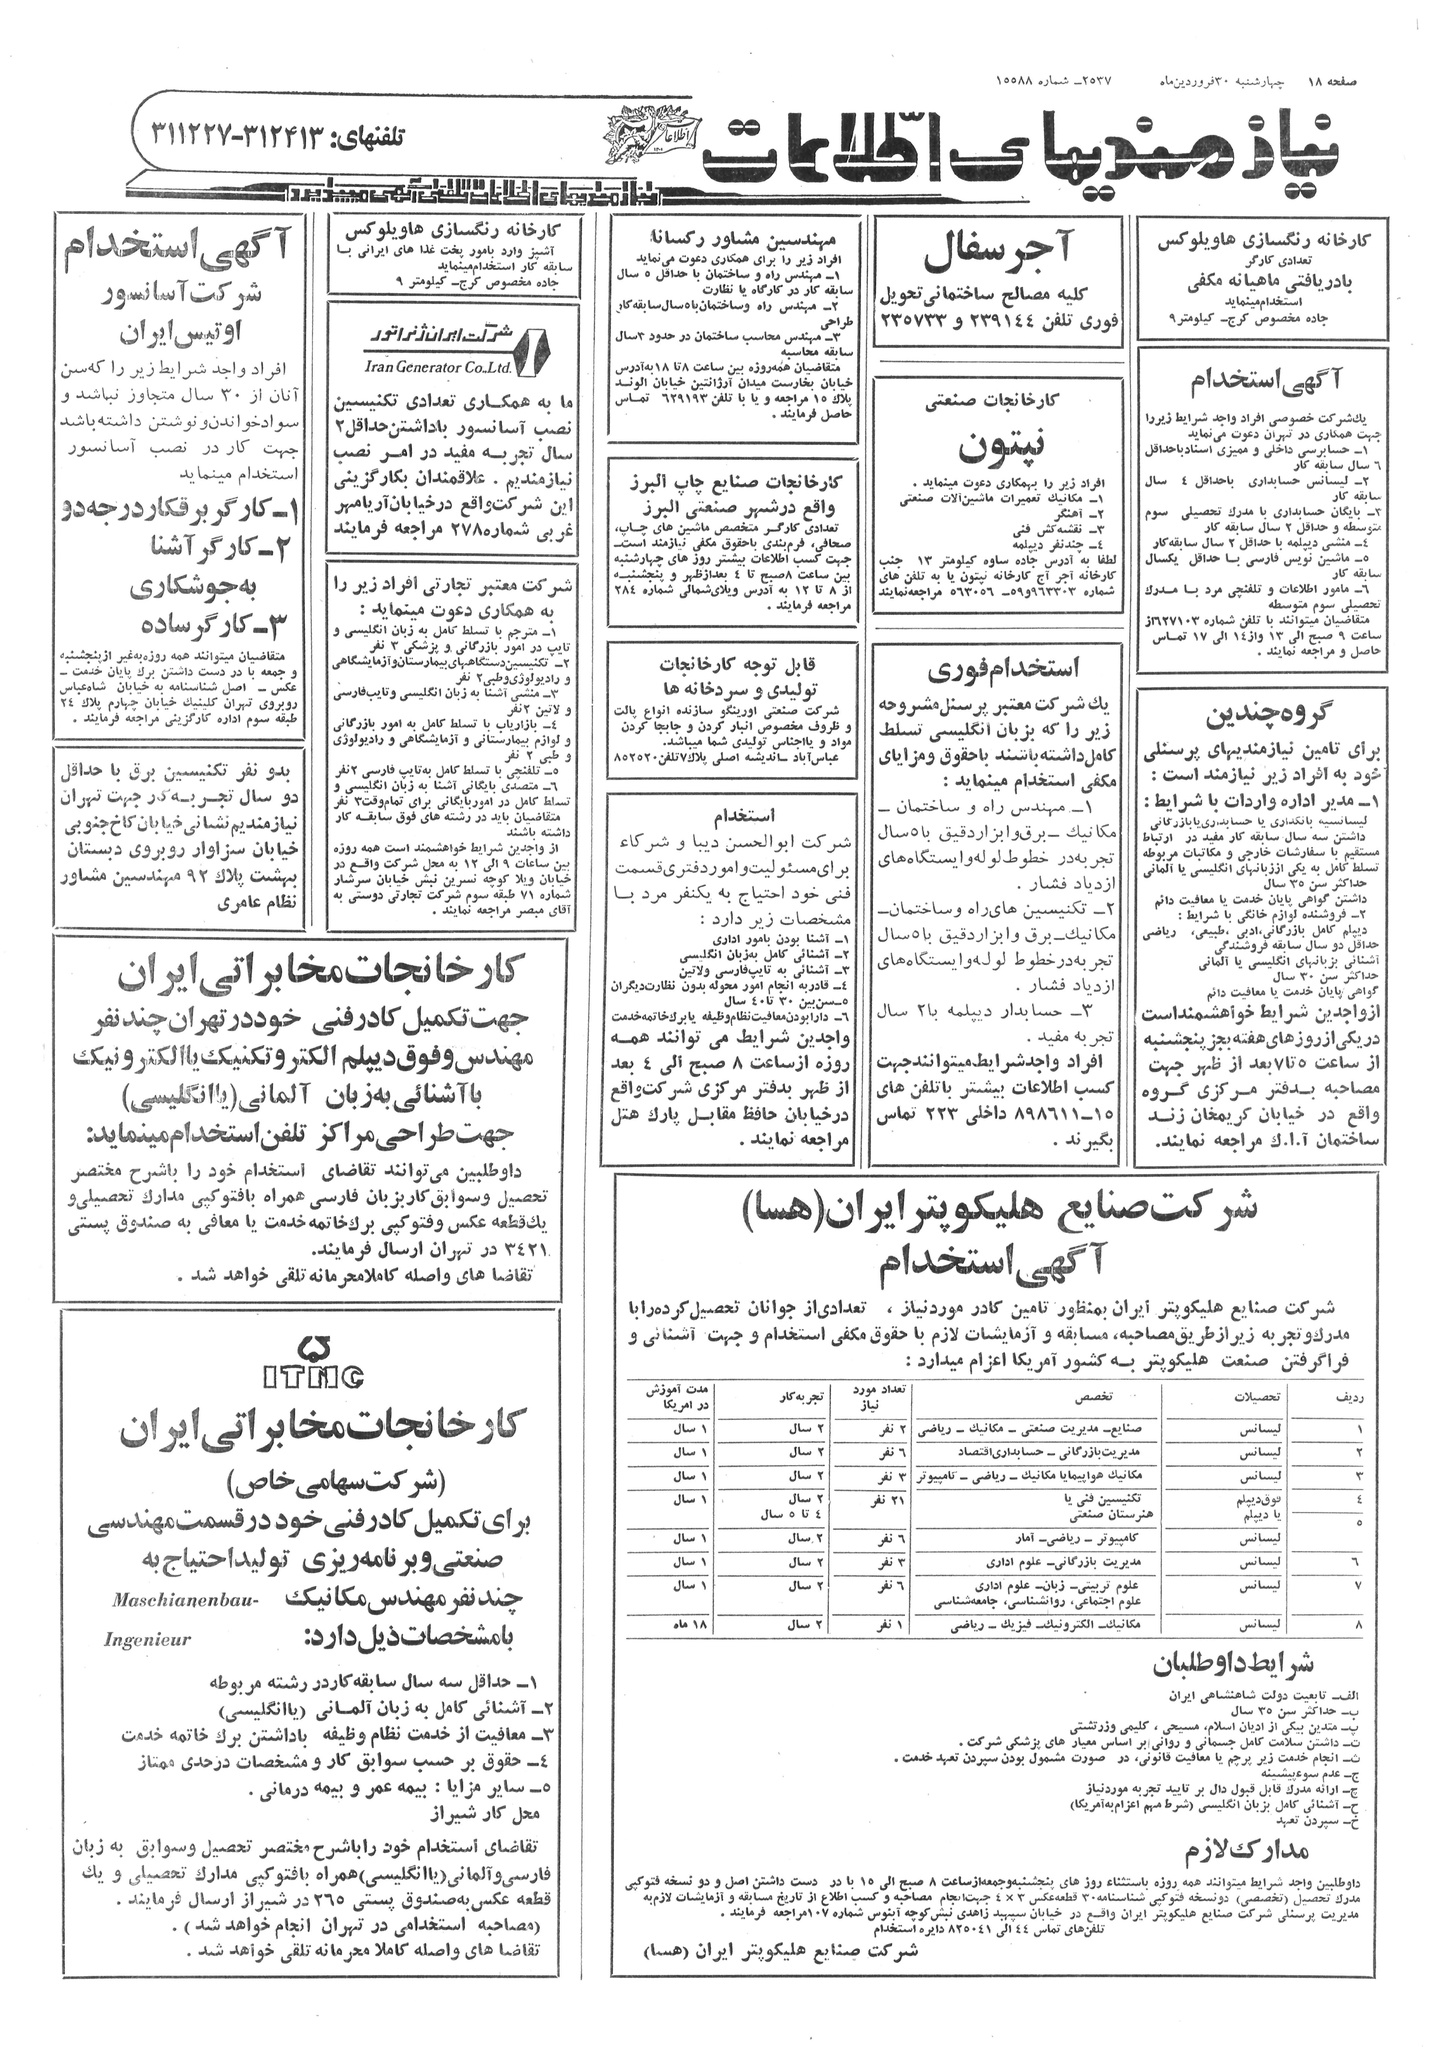 صفحه ۱۸ چهارشنبه ۳۰ فروردین‌ماه ۲۵۳۷ـ شماره ۱۵۵۸۸
نیازمندیهای اطلاعات
تلفنهای: ۳۱۲۴۱۳-۳۱۱۲۲۷
نیازمندیهای اطلاعات تلفنی آگهی میپذیرد
کارخانه رنگسازی هاویلوکس
تعدادی کارگر
بادریافتی ماهیانه مکفی
استخدام‌مینماید
جاده مخصوص کرج- کیلومتر ۹
آگهی استخدام
یك شرکت خصوصی افراد واجد شرایط زیررا
جهت همکاری در تهران دعوت می‌نماید
۱ـ حسابرسی داخلی و ممیزی اسنادباحداقل
۶ سال سابقه کار
۲ـ لیسانس حسابداری باحداقل ۴ سال
سابقه کار
۳ـ بایگان حسابداری با مدرك تحصیلی سوم
متوسطه و حداقل ۲ سال سابقه کار
۴ـ منشی دیپلمه با حداقل ۲ سال سابقه کار
۵ـ ماشین نویس فارسی بـا حداقل یکسال
سابقه کار
۶ـ مامور اطلاعات و تلفنچی مرد بـا مـدرك
تحصیلی سوم متوسطه
متقاضیان میتوانند با تلفن شماره ۶۲۷۱۰۳از
ساعت ۹ صبح الی ۱۳ واز۱۴ الی ۱۷ تمـاس
حاصل و مراجعه نمایند .
گروه چندین
برای تامین نیازمندیهای پرسنلی
خود به افراد زیر نیازمند است :
۱ـ مدیر اداره واردات با شرایط :
لیسانسیه بانکداری یا حسابداری‌یابازرگانی
داشتن سه سال سابقه کار مفید در ارتباط
مستقیم با سفارشات خارجی و مکاتبات مربوطه
تسلط کامل به یکی اززبانهای انگلیسی یا آلمانی
حداکثر سن ۳۵ سال
داشتن گواهی پایان خدمت یا معافیت دائم
۲ـ فروشنده لوازم خانگی با شرایط :
دیپلم کامل بازرگانی،ادبی ،طبیعی، ریاضی
حداقل دو سال سابقه فروشندگی
آشنائی بزبانهای انگلیسی یا آلمانی
حداکثر سن ۳۰ سال
گواهی پایان خدمت یا معافیت دائم
ازواجدین شرایط خواهشمنداست
دریکی‌ازروزهای هفته بجز پنجشنبه
از ساعت ۵تا۷ بعد از ظهر جهت
مصاحبه بـدفتر مرکزی گروه
واقع در خیابان کریمخان زنـد
ساختمان آ.ا.ك مراجعه نمایند.
آجر سفال
کلیه مصالح ساختمانی تحویل
فوری تلفن ۲۳۹۱۴۴ و ۲۳۵۷۳۳
کارخانجات صنعتی
نپتون
افراد زیر را بهمکاری دعوت مینماید .
۱ـ مکانیك تعمیرات ماشین‌آلات صنعتی
۲ـ آهنگر
۳ـ نقشه‌کش فنی
۴ـ چندنفر دیپلمه
لطفا به آدرس جاده ساوه کیلومتر ۱۳ جنب
کارخانه آجر آج کارخانه نپتون یا به تلفن های
شماره ۹۶۳۳۰۳و۵۹ـ ۵۶۳۰۵۶ مراجعه‌نمایند
استخدام فوری
یك شرکت معتبر پرسنل مشروحه
زیر را که بزبان انگلیسی تسلط
کامل‌داشته‌باشند باحقوق ومزایای
مکفی استخدام مینماید :
۱ـ مهندس راه و ساختمان ـ
مکانیك ـ برق وابزاردقیق با۵سال
تجربه در خطوط لوله وایستگاه‌های
ازدیاد فشار .
۲ـ تکنیسین های‌راه وساختمان-
مکانیك ـ برق وابزاردقیق با۵سال
تجربه‌در خطوط لوله وایستگاه‌های
ازدیاد فشار .
۳ـ حسابدار دیپلمه با۲ سال
تجربه مفید .
افراد واجد شرایط میتوانند جهت
کسب اطلاعات بیشتر باتلفن های
۱۵ـ۸۹۸۶۱۱ داخلی ۲۲۳ تماس
بگیرند .
مهندسین مشاور رکسانا
افراد زیر را برای همکاری دعوت می‌نماید
۱ـ مهندس راه و ساختمان با حداقل ۵ سال
سابقه کار در کارگاه یا نظارت
۲ـ مهندس راه وساختمان با۵سال‌سابقه‌کار
طراحی
۳ـ مهندس محاسب ساختمان در حدود ۳سال
سابقه محاسبه
متقاضیان همه‌روزه بین ساعت ۸تا ۱۸ به‌آدرس
خیابان بخارست میدان آرژانتین خیابان الوند
پلاك ۱۵ مراجعه و یا با تلفن ۶۲۹۱۹۳ تماس
حاصل فرمایند .
کارخانجات صنایع چاپ البرز
واقع درشهر صنعتی البرز
تعدادی کارگـر متخصص ماشین های چـاپ،
صحافی، فرم‌بندی باحقوق مکفی نیازمند است-
جهت کسب اطلاعات بیشتر روز های چهارشنبه
بین ساعت ۸صبح تا ۴ بعدازظهر و پنجشنبه
از ۸ تا ۱۲ به آدرس ویلای‌شمالی شماره ۲۸۴
مراجعه فرمایند .
قابل توجه کارخانجات
تولیدی و سردخانه ها
شرکت صنعتی اورینگو سازنده انواع پالت
و ظروف مخصوص انبار کردن و جابجا کردن
مواد و یااجناس تولیدی شما میباشد.
عباس‌آباد ـ اندیشه اصلی پلاك۷تلفن۸۵۲۵۲۰
استخدام
شرکت ابوالحسن دیبا و شرکاء
برای‌مسئولیت وامور دفتری‌قسمت
فنی خود احتیاج به یکنفر مرد بـا
مشخصات زیر دارد :
۱ـ آشنا بودن بامور اداری
۲ـ آشنائی کامل به‌زبان انگلیسی
۳ـ آشنائی به تایپ‌فارسی ولاتین
۴ـ قادربه انجام امور محوله بدون نظارت‌دیگران
۵ـ سن‌بین ۳۰ تا۴۰ سال
۶ـ دارابودن‌معافیت‌نظام‌وظیفه یابرك خاتمه‌خدمت
واجدین شرایط می توانند همـه
روزه ازساعت ۸ صبح الی ۴ بعد
از ظهر بدفتر مرکزی شرکت‌واقع
درخیابان حافظ مقابل پارك هتل
مراجعه نمایند .
کارخانه رنگسازی هاویلوکس
آشپز وارد بامور پخت غذا های ایرانی بـا
سابقه کار استخدام‌مینماید
جاده مخصوص کرج- کیلومتر ۹
شرکت ایران ژنراتور
Iran Generator Co.,Ltd.
ما به همکاری تعدادی تکنیسین
نصب آسانسور باداشتن‌حداقل۲
سال تجربه مفید در امر نصب
نیازمندیم . علاقمندان بکارگزینی
این شرکت‌واقع درخیابان‌آریامهر
غربی شماره۲۷۸ مراجعه فرمایند
شرکت معتبر تجارتی افراد زیر را
به همکاری دعوت مینماید :
۱ـ مترجم با تسلط کامل به زبان انگلیسی و
تایپ در امور بازرگانی و پزشکی ۳ نفر
۲ـ تکنیسین‌دستگاههای‌بیمارستان‌وآزمایشگاهی
و رادیولوژی‌وطبی۲ نفر
۳ـ منشی آشنا به زبان انگلیسی وتایپ‌فارسی
و لاتین ۲نفر
۴ـ بازاریاب با تسلط کامل به امور بازرگانی
و لوازم بیمارستانی و آزمایشگاهی و رادیولوژی
و طبی ۲ نفر
۵ـ تلفنچی با تسلط کامل به‌تایپ فارسی ۲نفر
۶ـ متصدی بایگانی آشنا به زبان انگلیسی و
تسلط کامل در امور بایگانی برای تمام‌وقت۳ نفر
متقاضیان باید در رشته های فوق سابقـه کار
داشته باشند
از واجدین شرایط خواهشمند است همه روزه
بین ساعات ۹ الی ۱۲ به محل شرکت واقـع در
خیابان ویلا کوچه نسرین نبش خیابان سرشار
شماره ۷۱ طبقه سوم شرکت تجارتی دوستی به
آقای مبصر مراجعه نمایند .
آگهی استخدام
شرکت آسانسور
اوتیس ایران
افراد واجد شرایط زیر را که‌سن
آنان از ۳۰ سال متجاوز نباشد و
سوادخواندن‌ونوشتن داشته‌باشد
جهت کار در نصب آسانسور
استخدام مینماید
۱ـ کارگر برقکاردرجه دو
۲ـ کارگر آشنا
به‌جوشکاری
۳ـ کارگر ساده
متقاضیان میتوانند همه روزه‌به‌غیر ازپنجشنبه
و جمعه با در دست داشتن برك پایان خدمت ـ
عکس ـ اصل شناسنامه به خیابان شاه‌عباس
روبروی تهران کلینیك خیابان چهارم پلاك ۲۴
طبقه سوم اداره کارگزینی مراجعه فرمایند .
بدو نفر تکنیسین برق با حداقل
دو سال تجربه‌کار جهت تهران
نیازمندیم‌نشانی‌خیابان‌کاخ‌جنوبی
خیابان سزاوار روبروی دبستان
بهشت پلاك ۹۲ مهندسین مشاور
نظام عامری
کارخانجات مخابراتی ایران
جهت تکمیل کادر فنی خود در تهران چند نفر
مهندس وفوق دیپلم الکتروتکنیك یاالکترونیك
باآشنائی به زبان آلمانی (یاانگلیسی)
جهت طراحی مراکز تلفن استخدام مینماید:
داوطلبین می‌توانند تقاضای استخدام خود را باشرح مختصر
تحصیل وسوابق کاربزبان فارسی همراه بافتوکپی مدارك تحصیلی‌و
یك‌قطعه عکس وفتوکپی برك‌خاتمه خدمت یا معافی به صندوق پستی
۳۴۲۱ در تهران ارسال فرمایند.
تقاضا های واصله کاملامحرمانه تلقی خواهد شد .
ITMC
کارخانجات مخابراتی ایران
(شرکت سهامی خاص)
برای تکمیل کادر فنی خود در قسمت مهندسی
صنعتی وبرنامه ریزی تولید احتیاج به
چند نفر مهندس مکانیك Maschianenbau-
بامشخصات ذیل دارد: Ingenieur
۱ـ حداقل سه سال سابقه کاردر رشته مربوطه
۲ـ آشنائی کامل به زبان آلمـانی (یاانگلیسی)
۳ـ معافیت از خدمت نظام وظیفه باداشتن برك خاتمه خدمت
۴ـ حقوق بر حسب سوابق کار و مشخصات درحدی ممتاز
۵ـ سایر مزایا : بیمه عمر و بیمه درمانی .
محل کار شیراز
تقاضای استخدام خود راباشرح مختصر تحصیل وسوابق به زبان
فارسی‌وآلمانی(یاانگلیسی)همراه بافتوکپی مدارك تحصیلی و یك
قطعه عکس به‌صندوق پستی ۲۶۵ در شیراز ارسال فرمایند .
(مصاحبه استخدامی در تهران انجام خواهد شد ) .
تقاضا های واصله کاملا محرمانه تلقی خواهد شد .
شرکت صنایع هلیکوپتر ایران (هسا)
آگهی استخدام
شرکت صنایع هلیکوپتر ایران بمنظور تامین کادر موردنیاز ، تعدادی‌از جوانان تحصیل کرده رابا
مدرك‌وتجربه زیرازطریق‌مصاحبه، مسابقه و آزمایشات لازم با حقوق مکفی استخدام و جهت آشنائی و
فراگرفتن صنعت هلیکوپتر بـه کشور آمریکا اعزام میدارد :
ردیف تحصیلات تخصص تعداد مورد نیاز تجربه کار مدت آموزش در امریکا
۱ لیسانس صنایع- مدیریت صنعتی - مکانیك - ریاضی ۲ نفر ۲ سال ۱ سال
۲ لیسانس مدیریت‌بازرگانی - حسابداری‌اقتصاد ۶ نفر ۲ سال ۱ سال
۳ لیسانس مکانیك هواپیمایا مکانیك - ریاضی - کامپیوتر ۳ نفر ۲ سال ۱ سال
۴ فوق‌دیپلم تکنیسین فنی یا ۲۱ نفر ۲ سال ۱ سال
یا دیپلم هنرستان صنعتی ۴ تا ۵ سال
۵ لیسانس کامپیوتر - ریاضی- آمار ۶ نفر ۲ سال ۱ سال
۶ لیسانس مدیریت بازرگانی- علوم اداری ۳ نفر ۲ سال ۱ سال
۷ لیسانس علوم تربیتی- زبان- علوم اداری ۶ نفر ۲ سال ۱ سال
علوم اجتماعی، روانشناسی، جامعه‌شناسی
۸ لیسانس مکانیك- الکترونیك- فیزیك - ریاضی ۱ نفر ۲ سال ۱۸ ماه
شرایط داوطلبان
الف- تابعیت دولت شاهنشاهی ایران
ب- حداکثر سن ۳۵ سال
پ- متدین بیکی از ادیان اسلام، مسیحی ، کلیمی وزرتشتی
ت- داشتن سلامت کامل جسمانی و روانی‌بر اساس معیار های پزشکی شرکت .
ث- انجام خدمت زیر پرچم یا معافیت قانونی، در صورت مشمول بودن سپردن تعهد خدمت .
ج- عدم سوءپیشینه
چ- ارائه مدرك قابل قبول دال بر تایید تجربه موردنیاز
ح- آشنائی کامل بزبان انگلیسی (شرط مهم اعزام‌به‌آمریکا)
خ- سپردن تعهد
مدارك لازم
داوطلبین واجد شرایط میتوانند همه روزه باستثناء روز های پنجشنبه‌وجمعه‌ازساعت ۸ صبح الی ۱۵ با در دست داشتن اصل و دو نسخه فتوکپی
مدرك تحصیل (تخصصی) دونسخه فتوکپی شناسنامه ۳۰ قطعه‌عکس ۳ × ۴ جهت‌انجام مصاحبه و کسب اطلاع از تاریخ مسابقه و آزمایشات لازم‌به
مدیریت پرسنلی شرکت صنایع هلیکوپتر ایران واقـع در خیابان سپهبد زاهدی نبش‌کوچه آبنوس شماره ۱۰۷مراجعه فرمایند .
تلفن‌های تماس ۴۴ الی ۸۲۵۰۴۱ دایره استخدام
شرکت صنایع هلیکوپتر ایران (هسا)